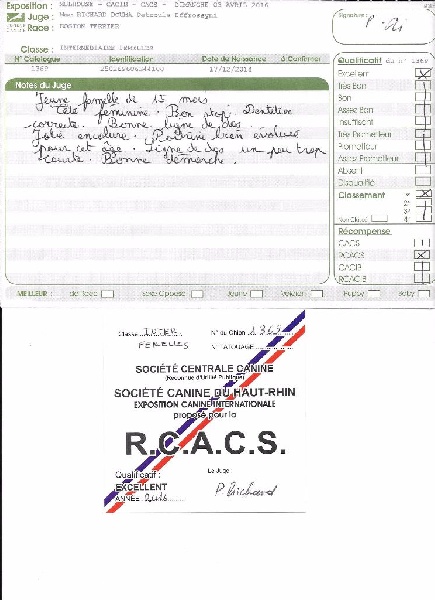 Exposition : MULHOUSE - CACIB - CACS - DIMANCHE 03 AVRIL 2016
Juge : Mme RICHARD DOUMA Petronle Edfrossyni
Race : BOSTON TERRIER
Signature :
Classe : INTERMEDIAIRE FEMELLES
N° Catalogue Identification Date de Naissance A Confirmer
1369 17/12/2014
Notes du Juge
Jeune femelle de 15 mois
Tête féminine. Bon stop. Dentition
correcte. Bonne ligne de dos.
Jolie encolure. Poitrine bien évoluée
pour cet âge. Ligne de dos un peu trop
courte. Bonne démarche.
Qualificatif du n° 1369
Excellent
Très Bon
Bon
Assez Bon
Insuffisant
Très Prometteur
Prometteur
Assez Prometteur
Absent
Disqualifié
Classement
1°
2°
3°
Non Classé 4°
Récompense
CACS
RCACS
CACIB
RCACIB
MEILLEUR : de race Sexe Opposé Jeune Vétéran Puppy Baby
Classe INTER N° du Chien 1369
FEMELLES N° TATOUAGE
SOCIÉTÉ CENTRALE CANINE
(Reconnue d'Utilité Publique)
SOCIÉTÉ CANINE DU HAUT-RHIN
EXPOSITION CANINE INTERNATIONALE
proposé pour la
R.C.A.C.S.
Qualificatif : Le Juge :
EXCELLENT
ANNÉE 2016 P Richard